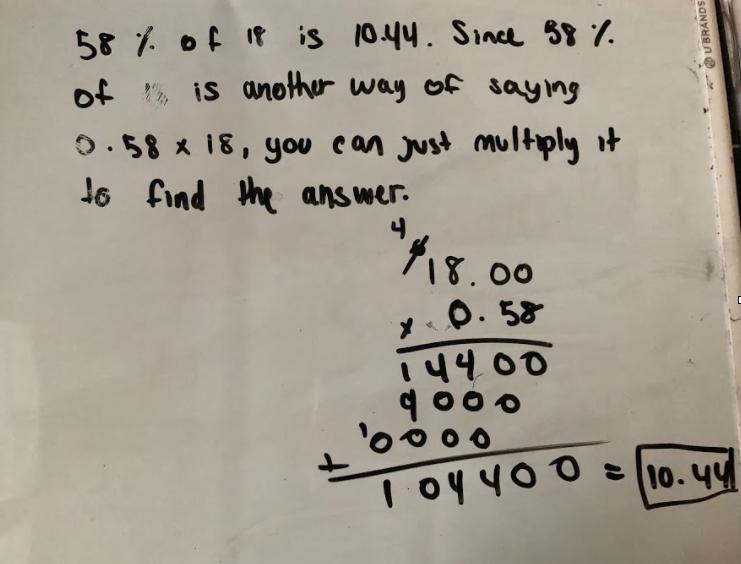 58 % of 18 is 10.44. Since 58 %
of is another way of saying
0.58 x 18, you can just multiply it
to find the answer.
4
18.00
x 0.58
14400
9000
10000
+
104400 = 10.44
U BRANDS